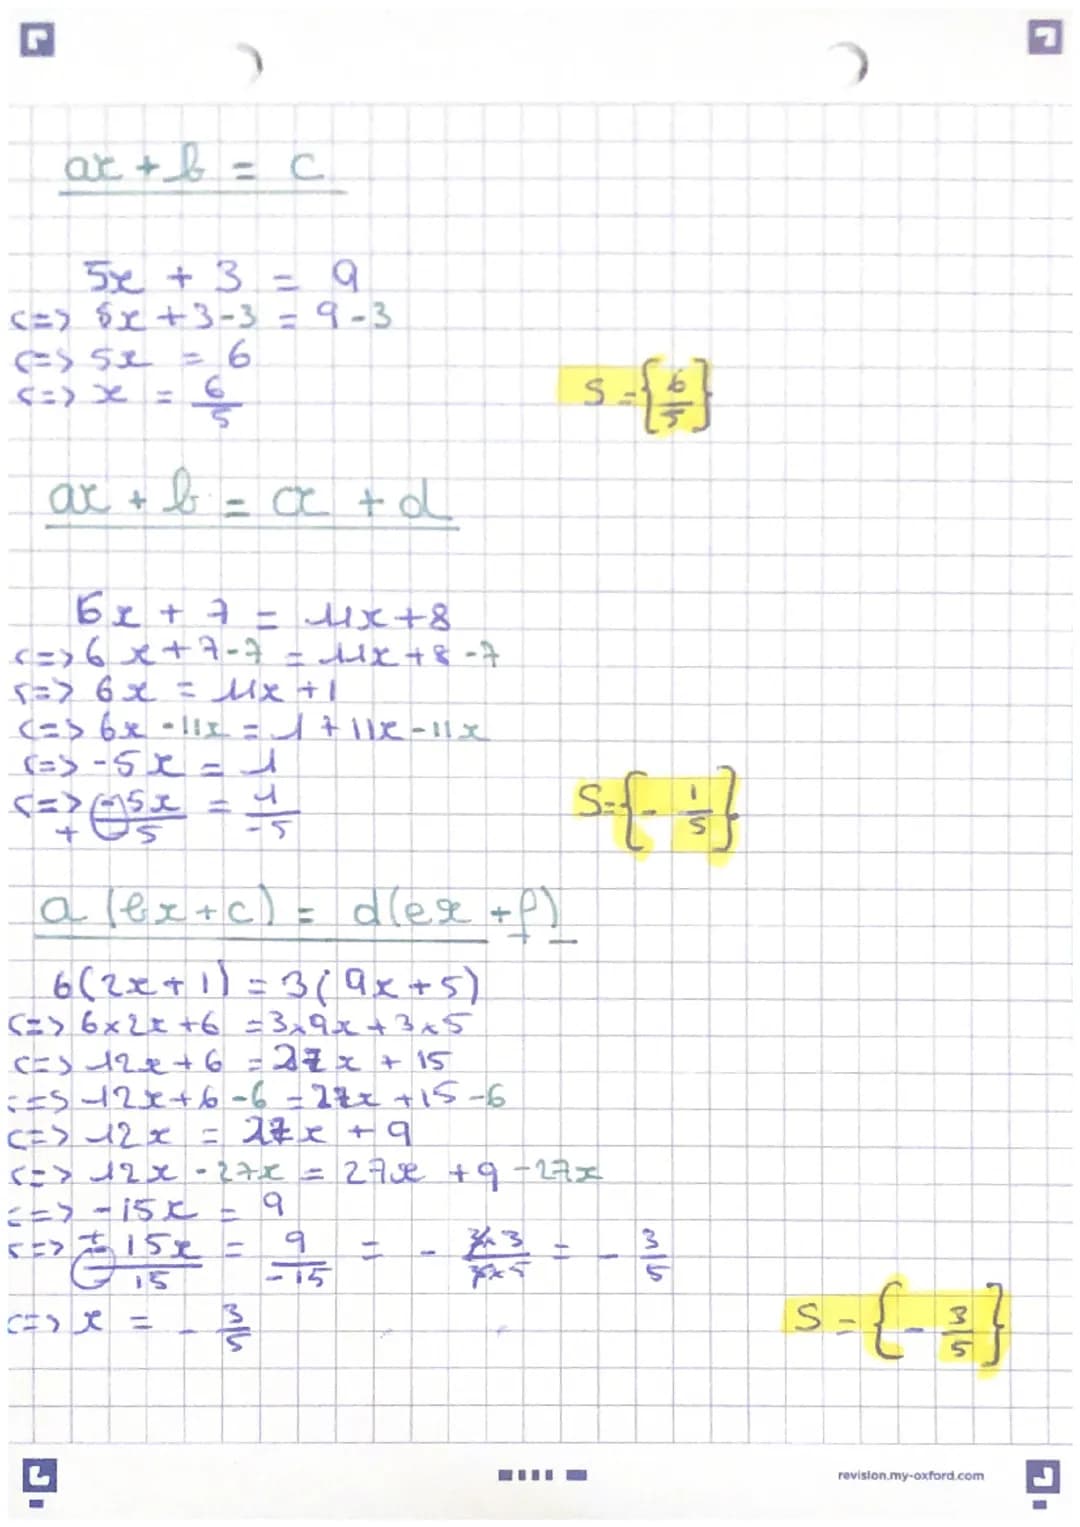 ax + b = c
5x + 3 = 9
<=> 5x + 3 - 3 = 9 - 3
<=> 5x = 6
<=> x = 6/5
S = {6/5}
ax + b = cx + d
6x + 7 = 11x + 8
<=> 6x + 7 - 7 = 11x + 8 - 7
<=> 6x = 11x + 1
<=> 6x - 11x = 1 + 11x - 11x
<=> -5x = 1
<=> -5x/-5 = 1/-5
+
S = {- 1/5}
a (bx + c) = d(ex + f)
6(2x + 1) = 3(9x + 5)
<=> 6×2x + 6 = 3×9x + 3×5
<=> 12x + 6 = 27x + 15
<=> 12x + 6 - 6 = 27x + 15 - 6
<=> 12x = 27x + 9
<=> 12x - 27x = 27x + 9 - 27x
<=> -15x = 9
<=> + -15x/-15 = 9/-15 = - 3×3/3×5 = - 3/5
<=> x = - 3/5
S = {- 3/5}
revision.my-oxford.com